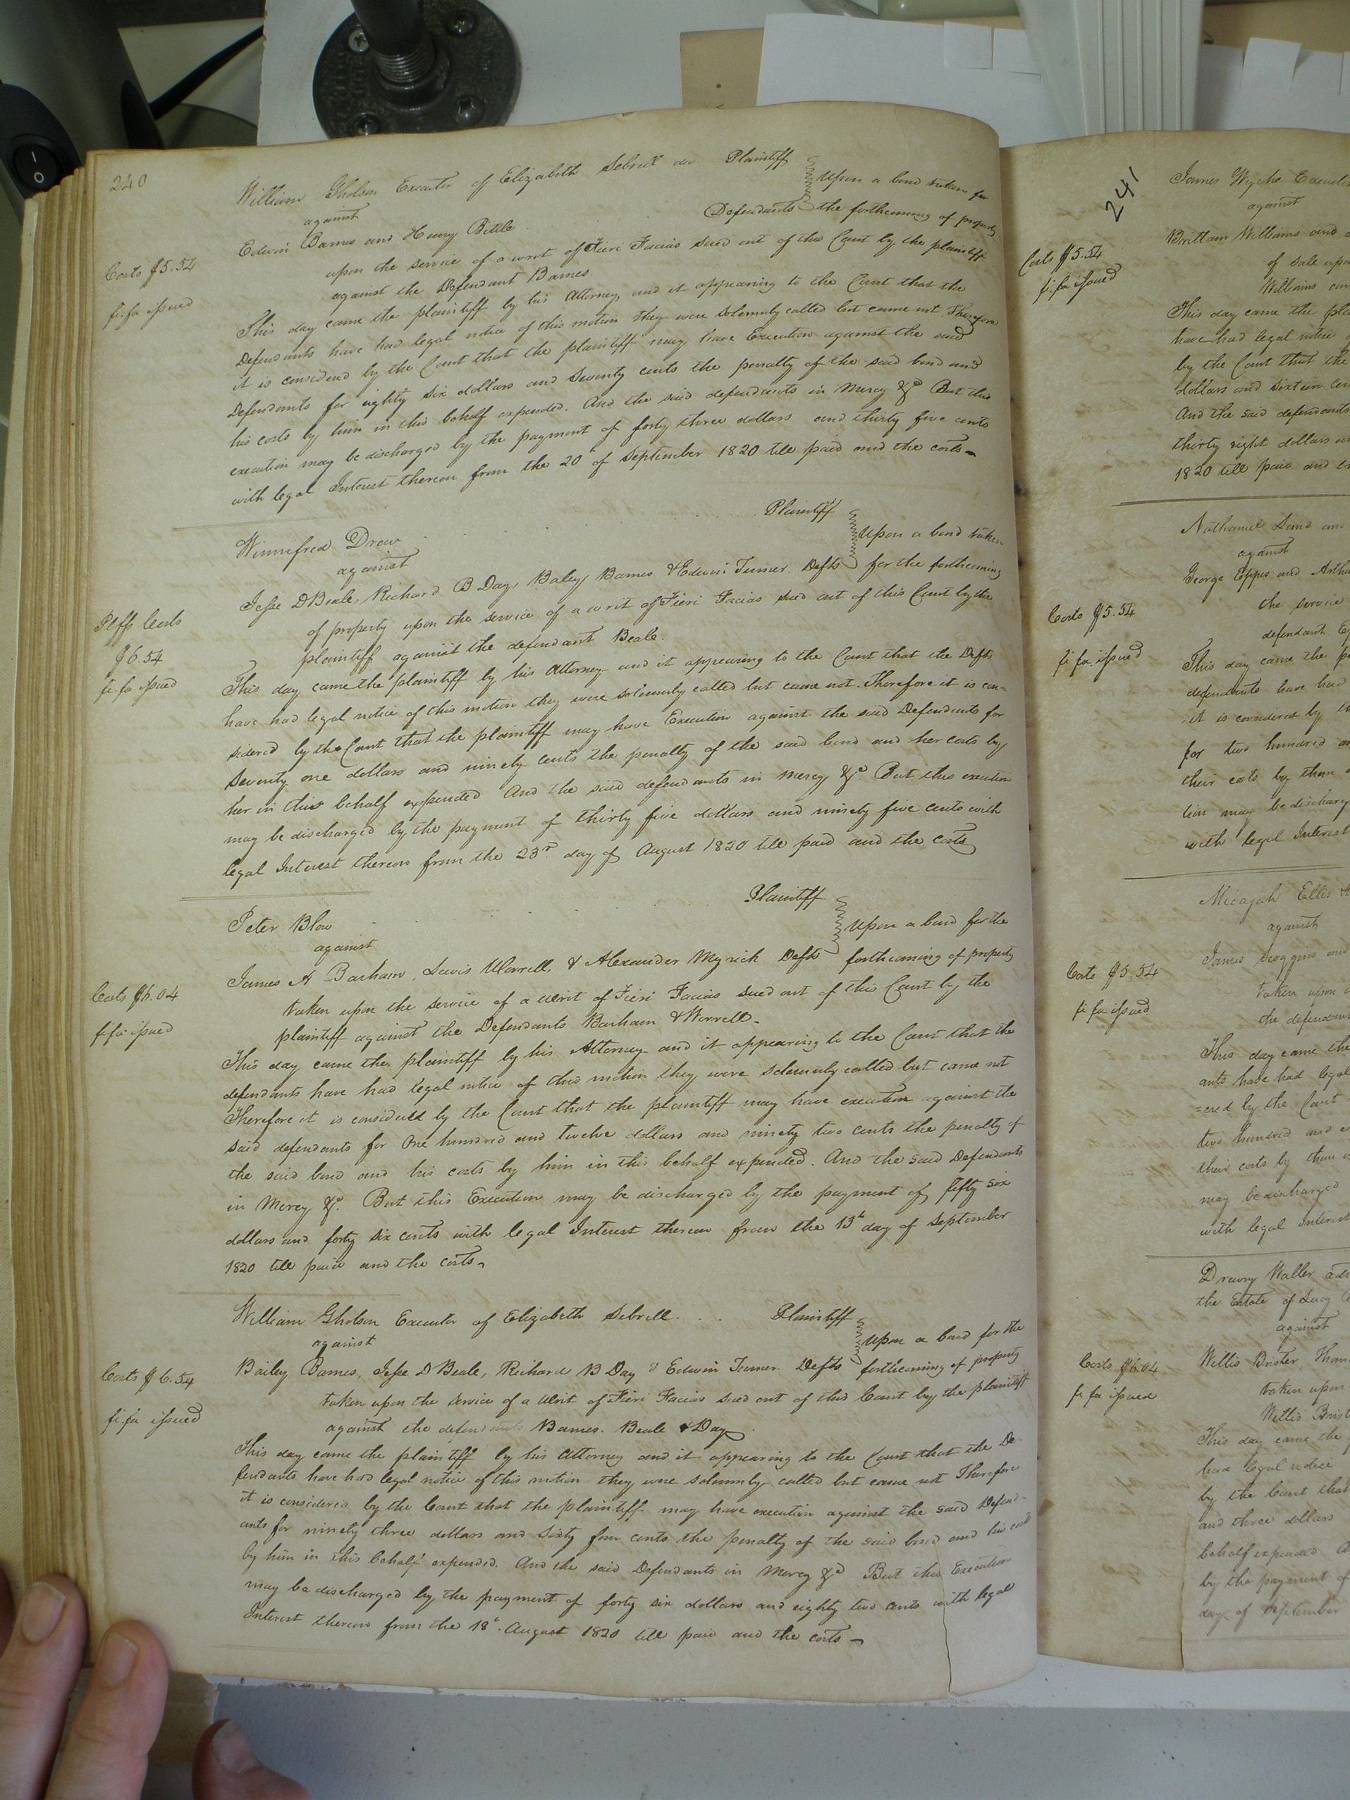 240
William Gholson Executor of Elizabeth Sebrell dec Plaintiff
against
Upon a bond taken for
Edwin Barnes and Henry Bittle Defendants the forthcoming of property
upon the service of a writ of Fieri Facias sued out of this Court by the plaintiff
against the Defendant Barnes
Costs $5.54
fi fa issued
This day came the plaintiff by his Attorney and it appearing to the Court that the
Defendants have had legal notice of this motion they were solemnly called but came not Therefore
it is considered by the Court that the plaintiff may have Execution against the said
Defendants for eighty six dollars and seventy cents the penalty of the said bond and
his costs by him in this behalf expended. And the said defendants in Mercy &c But this
execution may be discharged by the payment of forty three dollars and thirty five cents
with legal Interest thereon from the 20 of September 1820 till paid and the costs
Winnefred Drew Plaintiff
against
Upon a bond taken
Jesse D Beale, Richard B Day, Baley Barnes & Edwin Turner Defts for the forthcoming
of property upon the service of a writ of Fieri Facias sued out of this Court by the
plaintiff against the defendant Beale.
Plffs Costs
$6.54
fi fa issued
This day came the plaintiff by his Attorney and it appearing to the Court that the Defts
have had legal notice of this motion they were solemnly called but came not. Therefore it is con-
sidered by the Court that the plaintiff may have Execution against the said Defendants for
Seventy one dollars and ninety cents the penalty of the said bond and her costs by
her in this behalf expended And the said defendants in mercy &c But this execution
may be discharged by the payment of thirty five dollars and ninety five cents with
legal Interest thereon from the 23rd day of August 1820 till paid and the costs
Peter Blow Plaintiff
against
Upon a bond for the
James A Barham, Lewis Worrell, & Alexander Myrick Defts forthcoming of property
taken upon the service of a Writ of Fieri Facias sued out of this Court by the
plaintiff against the Defendants Barham & Worrell.
Costs $6.04
fi fa issued
This day came the plaintiff by his Attorney and it appearing to the Court that the
defendants have had legal notice of this motion they were solemnly called but came not
Therefore it is considered by the Court that the plaintiff may have execution against the
said defendants for One hundred and twelve dollars and ninety two cents the penalty of
the said bond and his costs by him in this behalf expended. And the said Defendants
in Mercy &c. But this Execution may be discharged by the payment of fifty six
dollars and forty six cents with legal Interest thereon from the 13th day of September
1820 till paid and the costs.
William Gholson Executor of Elizabeth Sebrell. Plaintiff
against
Upon a bond for the
Bailey Barnes, Jesse D Beale, Richard B Day & Edwin Turner Defts forthcoming of property
taken upon the service of a Writ of Fieri Facias sued out of this Court by the plaintiff
against the defendants Barnes. Beale & Day
Costs $6.54
fi fa issued
This day came the plaintiff by his Attorney and it appearing to the Court that the De-
fendants have had legal notice of this motion they were solemnly called but came not Therefore
it is considered by the Court that the plaintiff may have execution against the said Defend-
ants for ninety three dollars and sixty four cents the penalty of the said bond and his costs
by him in this behalf expended. And the said Defendants in Mercy &c But this Execution
may be discharged by the payment of forty six dollars and eighty two cents with legal
Interest thereon from the 18th August 1820 till paid and the costs
241
James Wyche Executor
against
Brittain Williams and
of sale upon
Williams
Costs $5.54
fi fa issued
This day came the
have had legal notice
by the Court that the
dollars and sixteen
And the said defendants
thirty eight dollars
1820 till paid and
Nathaniel Land and
against
George Eppes and
the service
defendant
Costs $5.54
fi fa issued
This day came the
defendants have had
it is considered by
for two hundred
their costs by them
tion may be discharg
with legal Interest
Micajah Ellis
against
James Scoggins and
taken upon
the defendan
Costs $5.54
fi fa issued
This day came the
ants have had legal
=ered by the Court
two hundred and
their costs by them
may be discharged
with legal Interest
Drewry Waller
the Estate of Lucy
against
Willis Brister,
taken upon
Willis
Costs $6.04
fi fa issued
This day came the
have legal notice
by the Court that
and three dollars
behalf expended
by the payment of
day of September